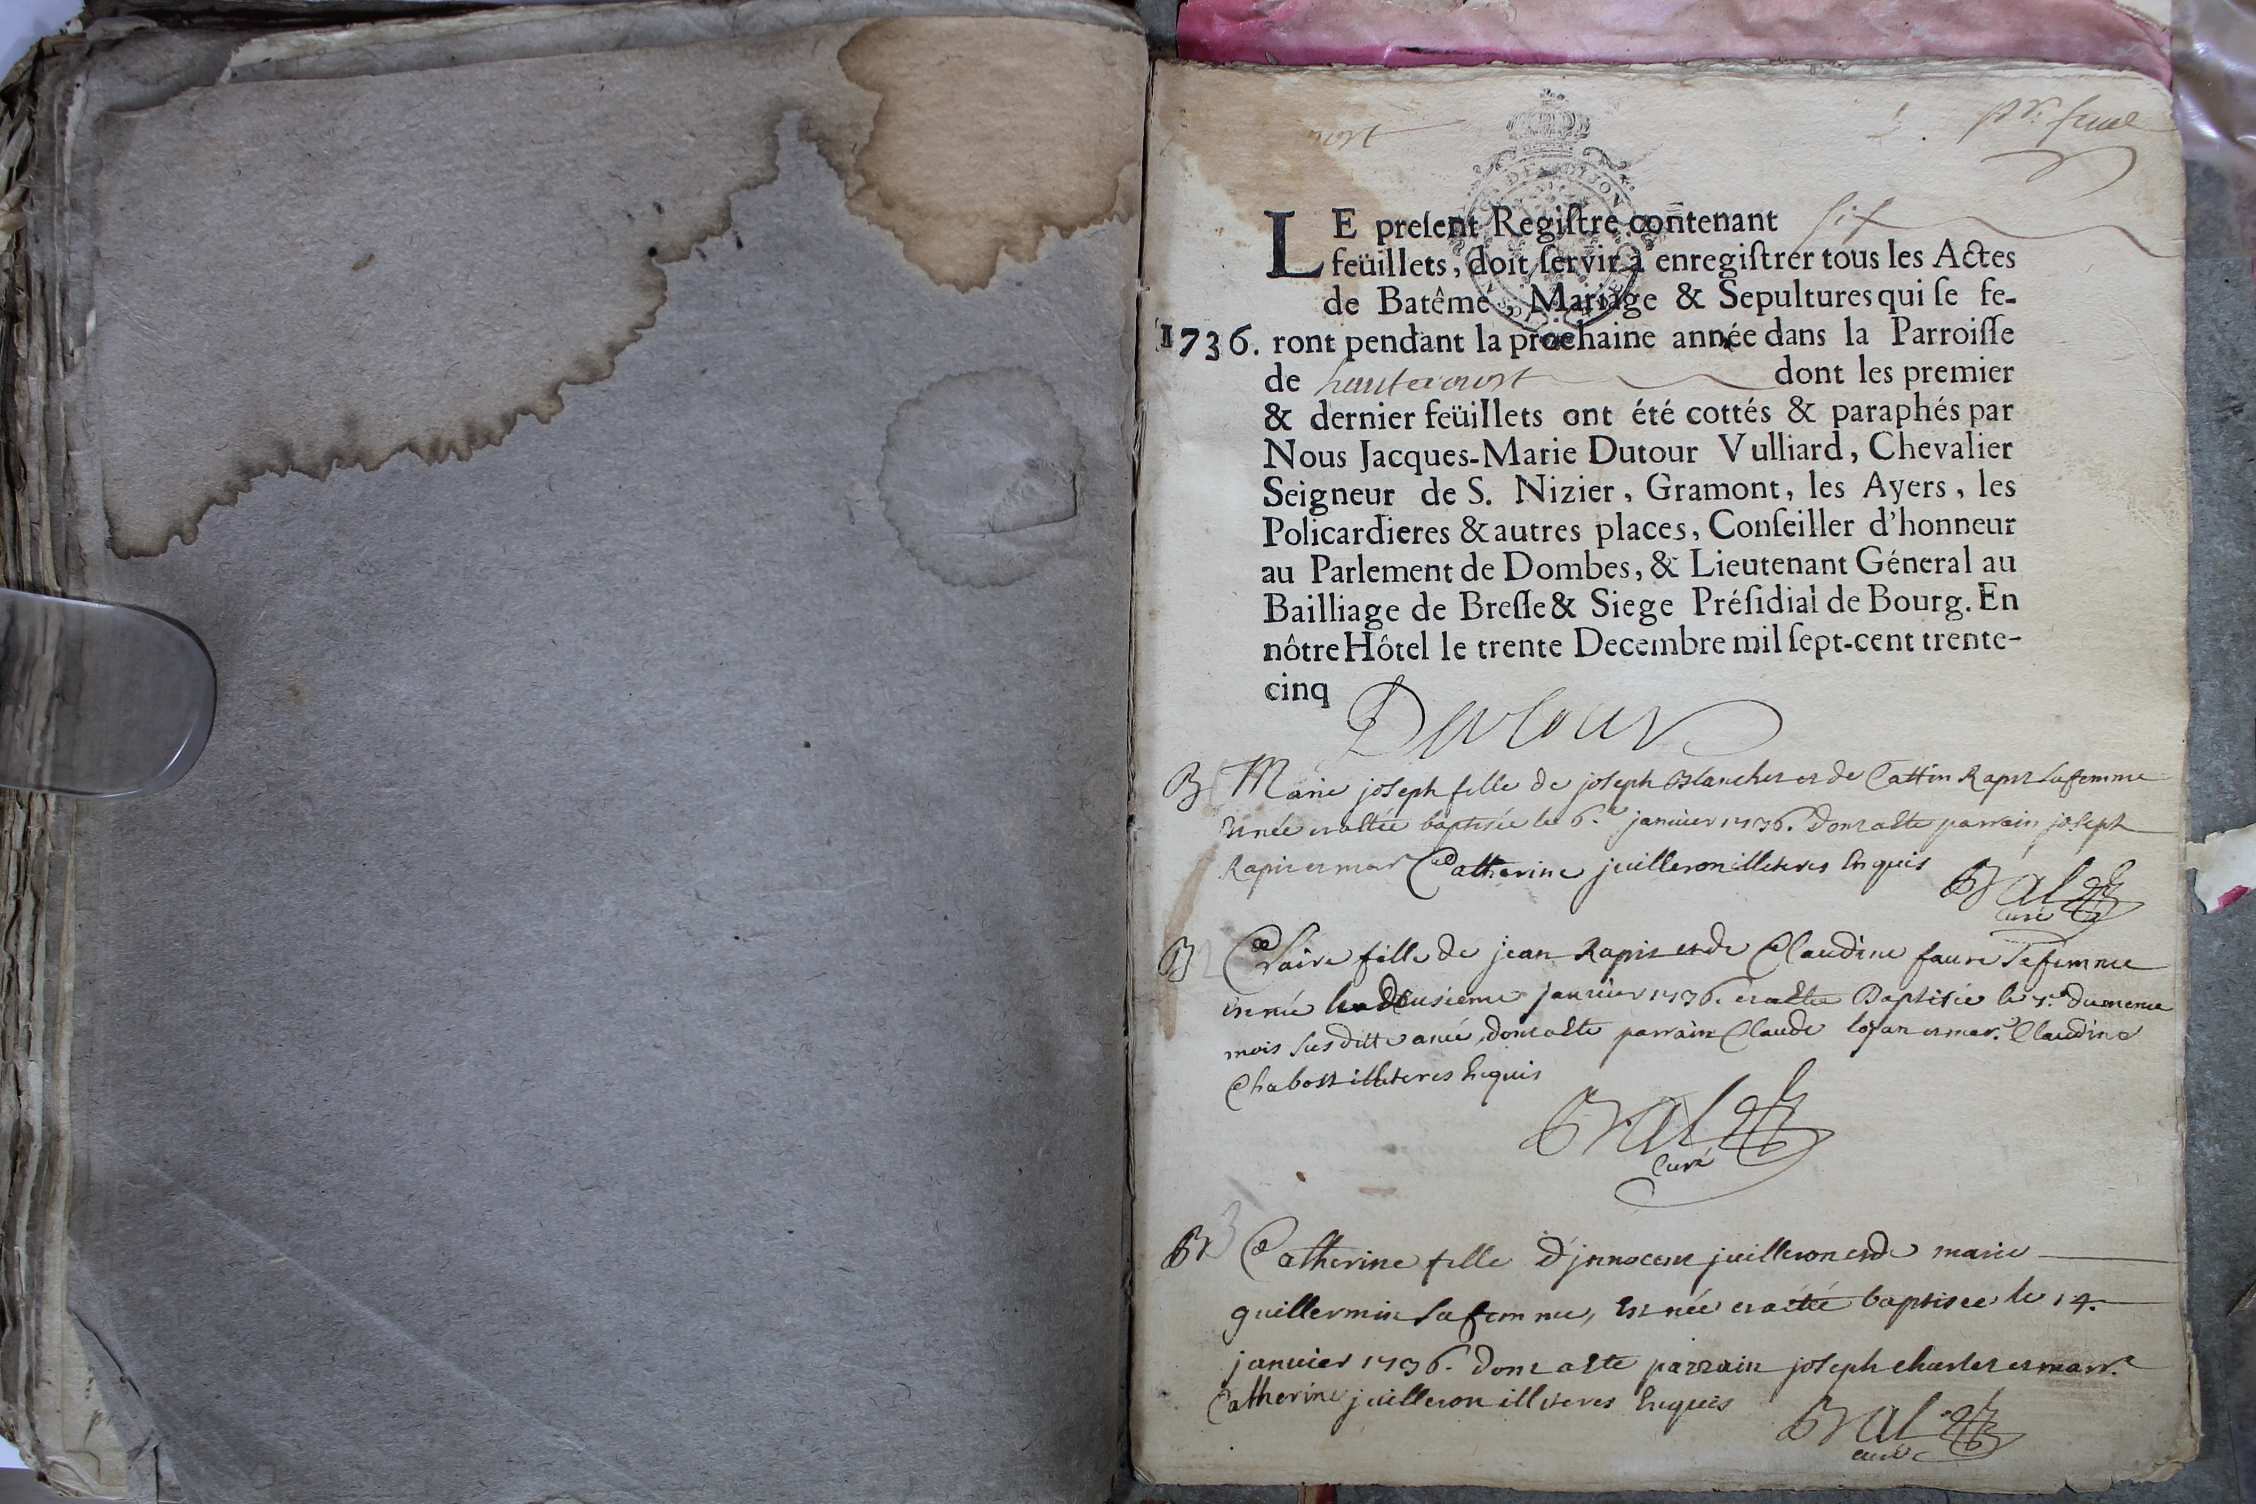 LE preſent Regiſtre contenant six
feüillets, doit ſervir à enregiſtrer tous les Actes
de Batême, Mariage & Sepultures qui ſe fe-
1736. ront pendant la prochaine année dans la Parroiſſe
de hautecourt dont les premier
& dernier feüillets ont été cottés & paraphés par
Nous Jacques-Marie Dutour Vulliard, Chevalier
Seigneur de S. Nizier, Gramont, les Ayers, les
Policardieres & autres places, Conſeiller d'honneur
au Parlement de Dombes, & Lieutenant Géneral au
Bailliage de Breſſe & Siege Préſidial de Bourg. En
nôtre Hôtel le trente Decembre mil ſept-cent trente-
cinq
Dutour
B Marie joseph fille de joseph Blanchet et de Cattin Rapit sa femme
est née et a été baptisée le 6.e janvier 1736. dont a été parrain joseph
Rapit et mar Catherine juilleron illiteres Enquis
curé
B Claire fille de jean Rapit et de Claudine faure sa femme
est née le deusieme janvier 1736. et a été Baptisée le du meme
mois susditte année dont a été parrain Claude et mar. Claudine
illiteres Enquis
curé
B 3 Catherine fille d'jnnocent juilleron et de marie
guillermin sa femme, Est née et a été baptisee le 14.
janvier 1736. dont a été parrain joseph et marr.e
Catherine juilleron illiteres Enquis
curé